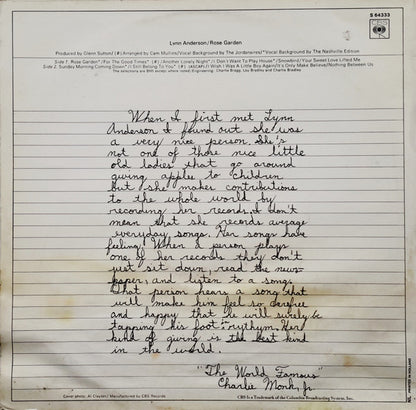 S 64333
CBS
Lynn Anderson/Rose Garden
Produced by Glenn Sutton/(#)Arranged by Cam Mullins/Vocal Background by The Jordanaires/*Vocal Background by The Nashville Edition
Side 1. Rose Garden*/For The Good Times* (#)/Another Lonely Night*/I Don't Want To Play House*/Snowbird/Your Sweet Love Lifted Me
Side 2. Sunday Morning Coming Down*/I Still Belong To You* (#) (ASCAP)/I Wish I Was A Little Boy Again/It's Only Make Believe/Nothing Between Us
The selections are BMI except where noted./Engineering: Charlie Bragg, Lou Bradley and Charlie Bradley
When I first met Lynn
Anderson I found out she was
a very nice person. She's
not one of those nice little
old ladies that go around
giving apples to children
but she makes contributions
to the whole world by
recording her records. I don't
mean that she records average
everyday songs. Her songs have
feeling! When a person plays
one of her records they don't
just sit down, read the news-
paper, and listen to a song.
That person hears a song that
will make him feel so carefree
and happy that he will surely be
tapping his foot in rythym. Her
kind of giving is the best kind
in the world.
"The World Famous"
Charlie Monk, Jr.
Cover photo: Al Clayton/ Manufactured by CBS Records
CBS is a Trademark of the Columbia Broadcasting System, Inc.
PRINTED IN HOLLAND